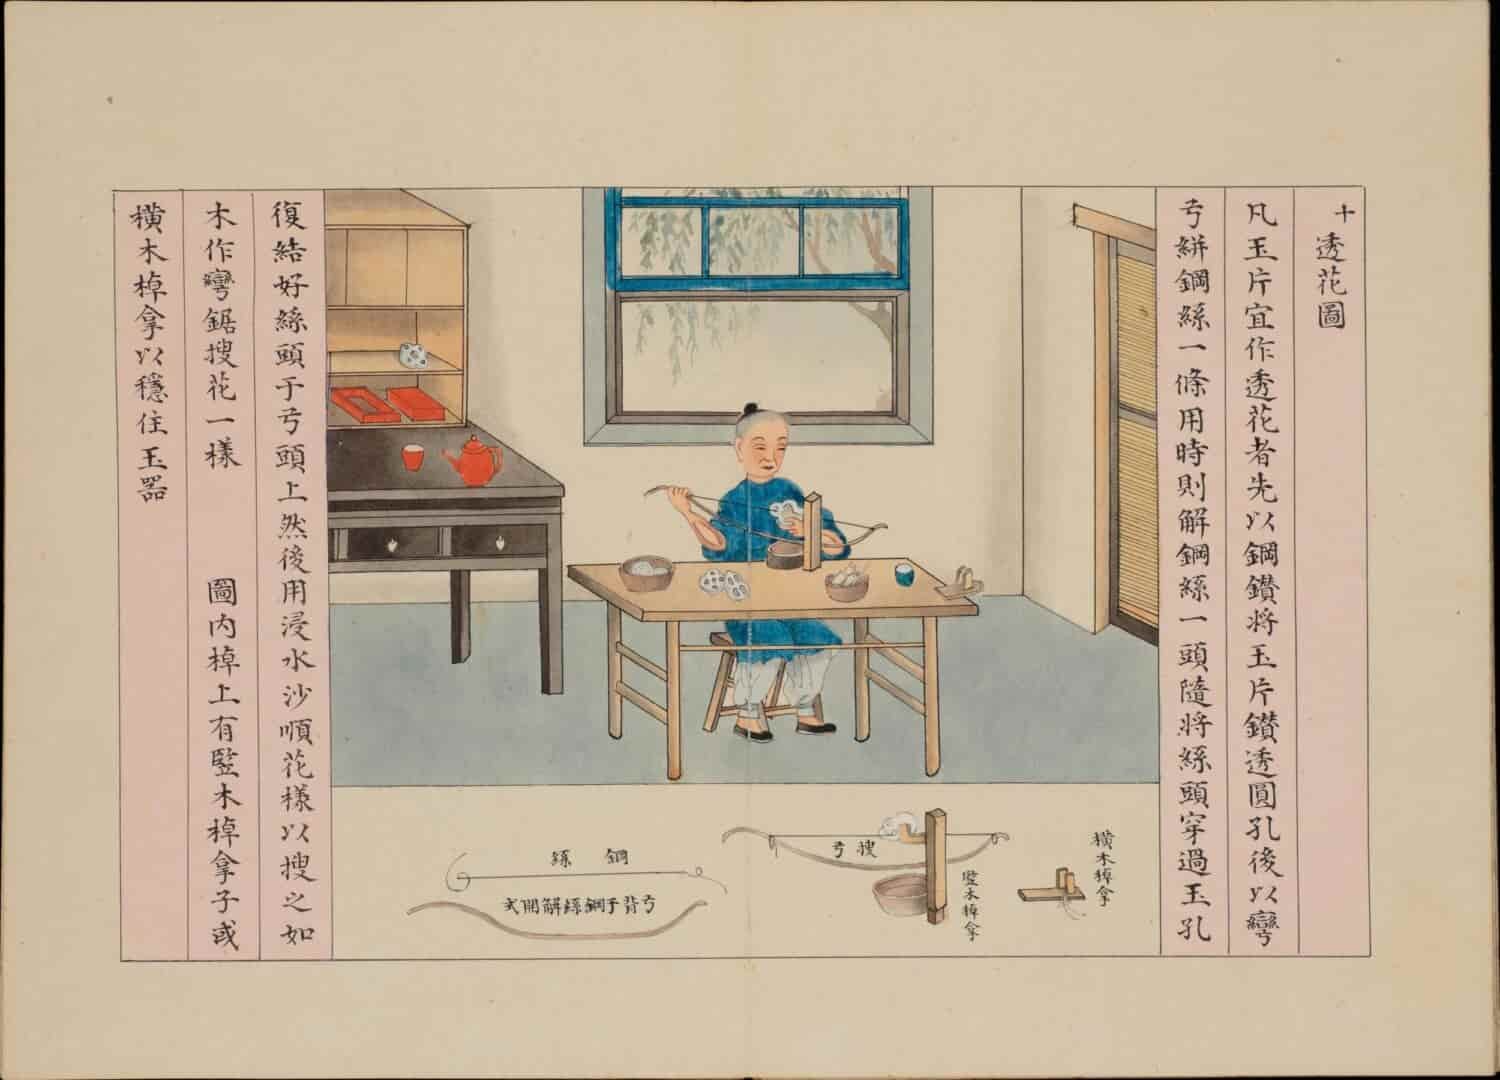 十透花圖
凡玉片宜作透花者先以鋼鑽將玉片鑽透圓孔後以彎
弓絣鋼絲一條用時則解鋼絲一頭隨將絲頭穿過玉孔
復結好絲頭于弓頭上然後用浸水沙順花樣以搜之如
木作彎鋸搜花一樣　圖內棹上有竪木棹拿子或
橫木棹拿以穩住玉器
橫木棹拿
竪木棹拿
搜弓
鋼絲
弓背于鋼絲解開式